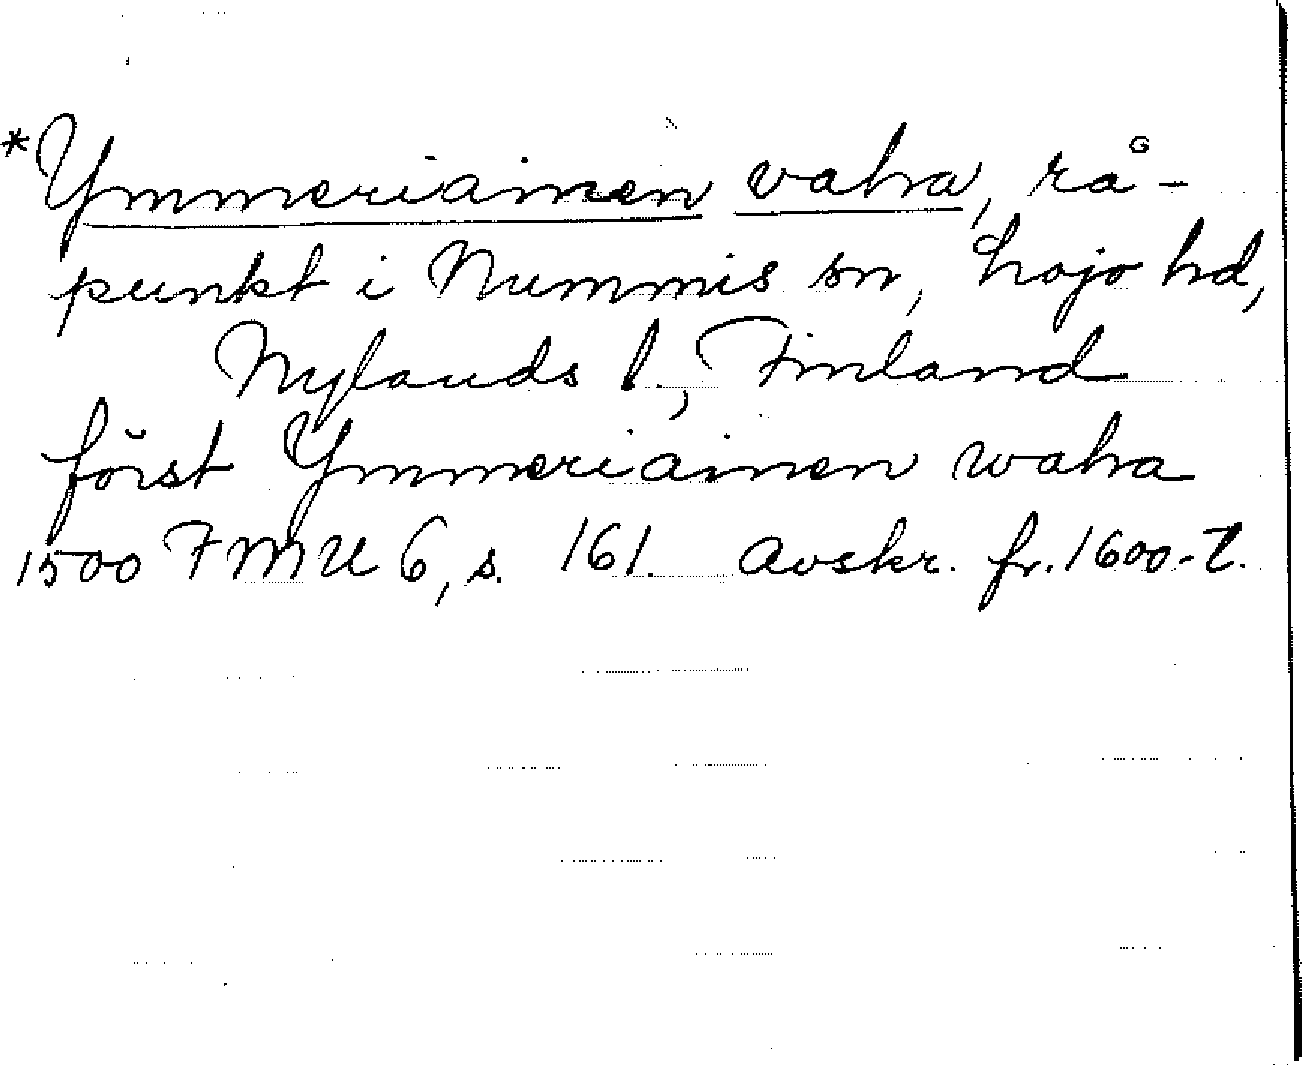 *Ymmeriäinen vaha, rå-
punkt i Nummis sn, Lojo hd,
Nylands l., Finland
först Ymmeriäinen waha
1500 FMU 6, s. 161. Avskr. fr. 1600-t.